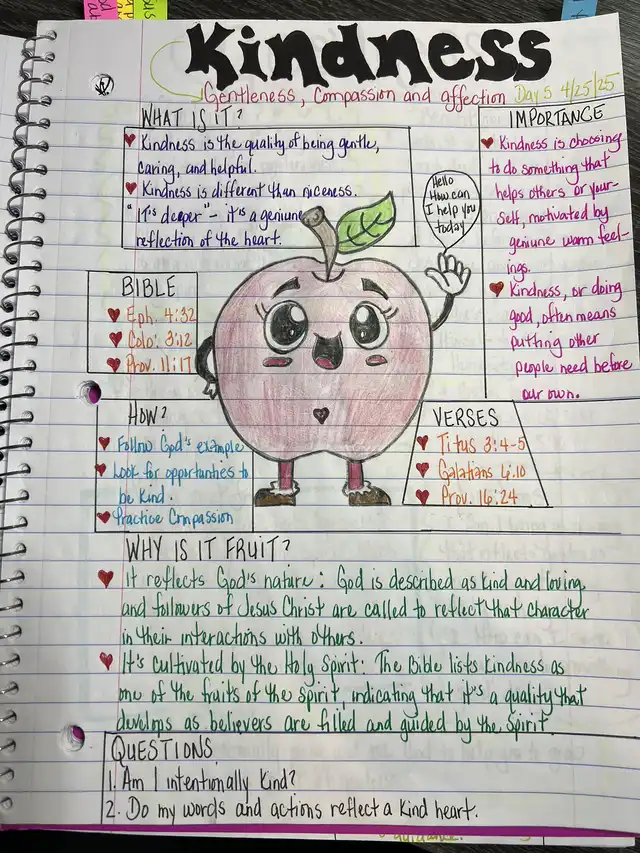 Kindness
Gentleness, Compassion and affection Day 5 4/25/25
WHAT IS IT?
Kindness is the quality of being gentle,
caring, and helpful.
Kindness is different than niceness.
"It's deeper" - it's a geniune
reflection of the heart.
IMPORTANCE
Kindness is choosing
to do something that
helps others or your-
self, motivated by
geniune warm feel-
ings.
Kindness, or doing
good, often means
putting other
people need before
our own.
Hello
How can
I help you
today
BIBLE
Eph. 4:32
Colo. 3:12
Prov. 11:17
HOW?
Follow God's example
Look for opportunities to
be kind.
Practice Compassion
VERSES
Titus 3:4-5
Galatians 6:10
Prov. 16:24
WHY IS IT FRUIT?
It reflects God's nature: God is described as kind and loving,
and followers of Jesus Christ are called to reflect that character
in their interactions with others.
It's cultivated by the Holy Spirit: The Bible lists kindness as
one of the fruits of the Spirit, indicating that it's a quality that
develops as believers are filled and guided by the Spirit
QUESTIONS
1. Am I intentionally kind?
2. Do my words and actions reflect a kind heart.